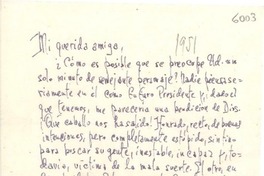 6003
Mi querida amiga, 1951
¿Cómo es posible que se preocupe Ud. un
solo minuto de semejante personaje? Nadie piensa se-
riamente en él como Futuro Presidente y, dado el
que tenemos, me parecería una bendición de Dios.
¡Que caballo nos ha salido! Honrado, recto, de buenas
intenciones, pero completamente estúpido, sin tino
para buscar su gente, inestable, incapaz y, to-
davía, víctima de la mala suerte. El otro, en